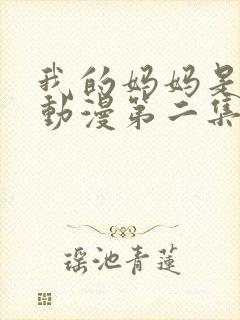 我的妈妈是
動漫第二集
瑶池青蓮